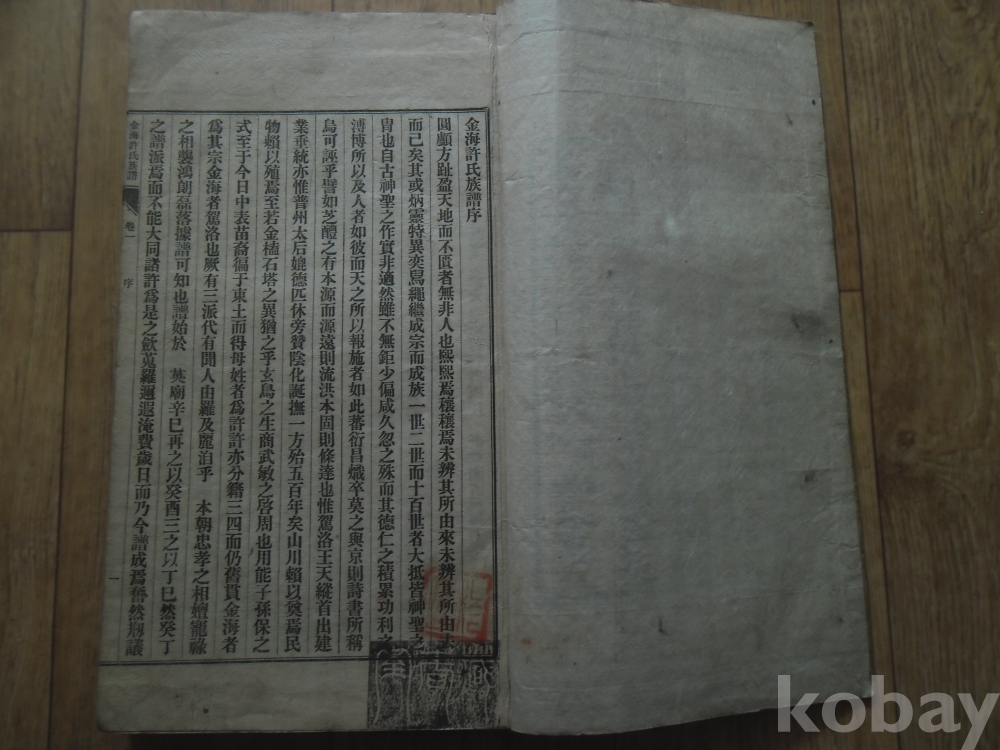 金海許氏族譜序
圓顱方趾盈天地而不匱者無非人也熙熙焉穰穰焉未辨其所由來未辨其所由
而已矣其或炳靈特異奕舃繩繼成宗而成族一世二世而十百世者大抵皆神聖之
冑也自古神聖之作實非適然雖不無鉅少偏咸久忽之殊而其德仁之積累功利之
溥博所以及人者如彼而天之所以報施者如此蕃衍昌熾卒莫之與京則詩書所稱
烏可誣乎譬如芝醴之有本源而源遠則流洪本固則條達也惟駕洛王天縱首出建
業垂統亦惟普州太后媲德匹休旁贊陰化誕撫一方殆五百年矣山川賴以奠焉民
物賴以殖焉至若金榼石塔之異猶之乎玄鳥之生商武敏之啓周也用能子孫保之
式至于今日中表苗裔徧于東土而得母姓者爲許許亦分籍三四而仍舊貫金海者
爲其宗金海者駕洛也厥有三派代有聞人由羅及麗泊乎 本朝忠孝之相嬗寵祿
之相襲鴻朗磊落據譜可知也譜始於 英廟辛巳再之以癸酉三之以丁巳然癸丁
之譜派焉而不能大同諸許爲是之歉蒐羅邇遐淹費歲日而乃今譜成焉舊然剏議
金海許氏族譜 卷一 序 一
kobay